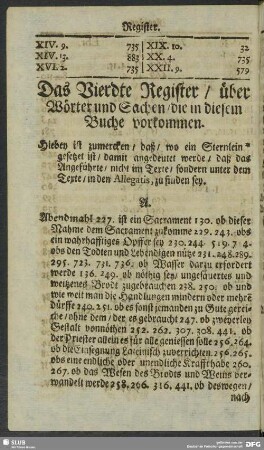 Register.
XIV. 9. 735 XIX. 10. 32
XIV. 13. 883 XX. 4. 735
XVI. 2. 735 XXII. 9. 579
Das Vierdte Register / über
Wörter und Sachen / die in diesem
Buche vorkommen.
Hiebey ist zumercken / daß / wo ein Sternlein *
gesetzet ist / damit angedeutet werde / daß das
Angeführte / nicht im Texte / sondern unter dem
Texte / in den Allegatis, zu finden sey.
A.
Abendmahl 227. ist ein Sacrament 130. ob dieser
Nahme dem Sacrament zukomme 229. 243. obs
ein wahrhafftiges Opffer sey 230. 244. 519. 7. 4.
obs den Todten und Lebendigen nütz 231. 248. 289.
295. 723. 731. 736. ob Wasser darzu erfordert
werde 136. 249. ob nöthig sey / ungesäuertes und
weitzenes Brodt zugebrauchen 238. 250. ob und
wie weit man die Handlungen mindern oder mehrē
dürffe 240. 251. ob es sonst jemanden zu Gute gerei-
che / ohne dem / der es gebraucht 247. ob zweyerley
Gestalt vonnöthen 252. 262. 307. 308. 441. ob
der Priester allein es für alle geniessen solle 256. 264.
ob die Einsegnung Lateinisch zuverrichten 256. 265.
obs eine endliche oder unendliche Krafft habe 260.
267. ob das Wesen des Brodts und Weins ver-
wandelt werde 258. 296. 316. 441. ob deswegen /
nach
SLUB
DFG